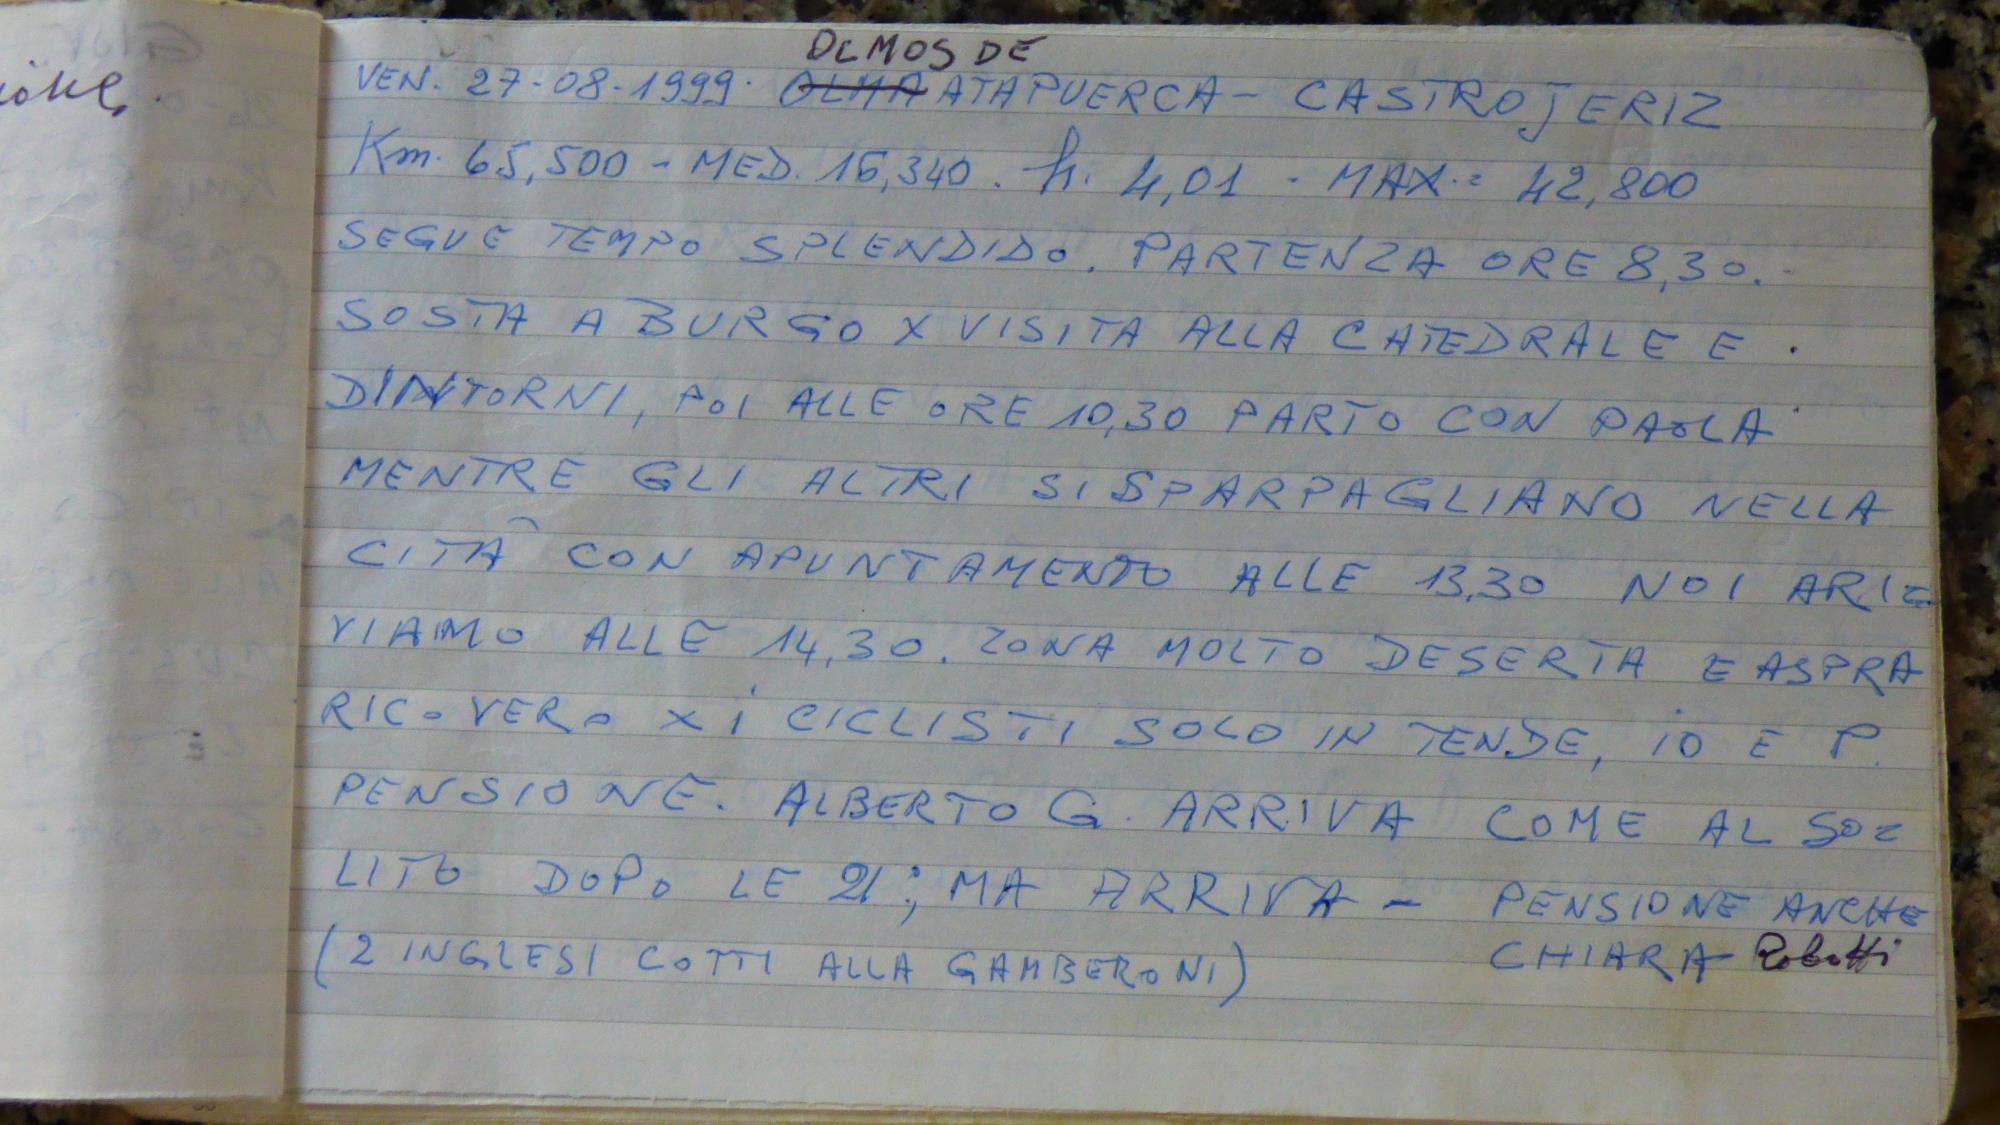 OLMOS DE
VEN. 27-08-1999. OLMA ATAPUERCA - CASTROJERIZ
Km. 65,500 - MED. 16,340. h. 4,01 - MAX.= 42,800
SEGUE TEMPO SPLENDIDO. PARTENZA ORE 8,30.
SOSTA A BURGO X VISITA ALLA CATEDRALE E
DINTORNI, POI ALLE ORE 10,30 PARTO CON PAOLA
MENTRE GLI ALTRI SI SPARPAGLIANO NELLA
CITÀ CON APUNTAMENTO ALLE 13,30 NOI ARI=
VIAMO ALLE 14,30. ZONA MOLTO DESERTA E ASPRA
RICOVERO X I CICLISTI SOLO IN TENDE, IO E P.
PENSIONE. ALBERTO G. ARRIVA COME AL SO=
LITO DOPO LE 21; MA ARRIVA - PENSIONE ANCHE
(2 INGLESI COTTI ALLA GAMBERONI) CHIARA Robotti